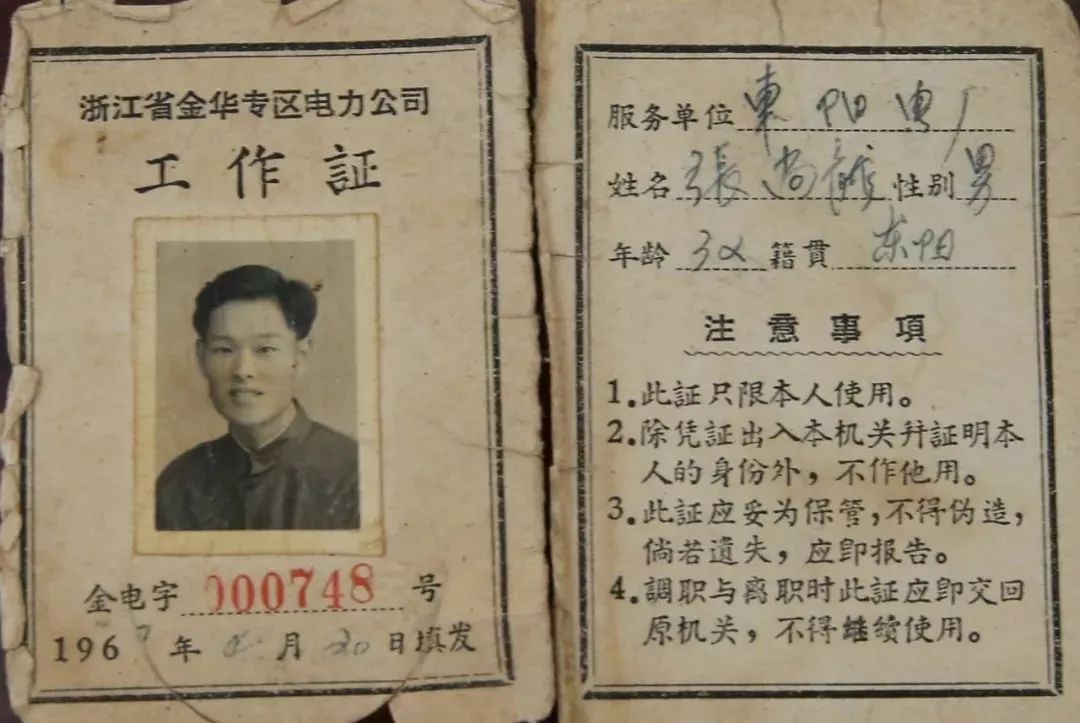 浙江省金华专区电力公司
工作証
金电字000748号
196 年 月20日填发
服务单位 東阳电厂
姓名 張尚 性别 男
年龄 32 籍貫 东阳
注意事項
1.此証只限本人使用。
2.除凭証出入本机关幷証明本
人的身份外，不作他用。
3.此証应妥为保管，不得伪造，
倘若遺失，应卽报告。
4.調职与离职时此証应卽交回
原机关，不得継續使用。